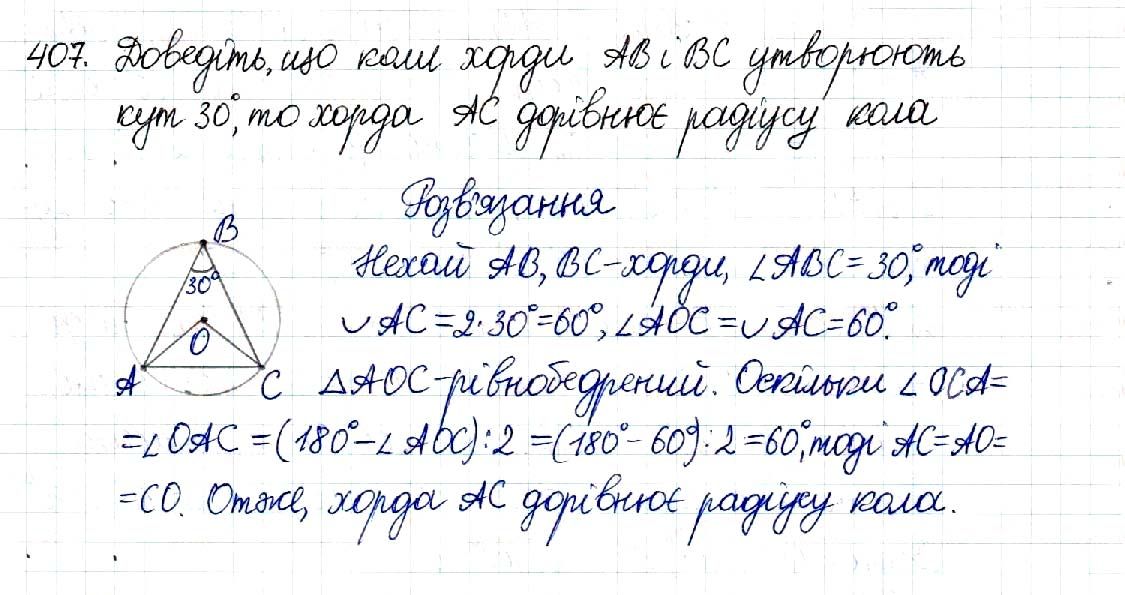 407. Доведіть, що коли хорди AB і BC утворюють
кут 30°, то хорда AC дорівнює радіусу кола
Розв'язання
B
30°
O
A
C
Нехай AB, BC-хорди, ∠ABC = 30°, тоді
∪AC = 2·30° = 60°, ∠AOC = ∪AC = 60°.
△AOC-рівнобедрений. Оскільки ∠OCA =
= ∠OAC = (180° - ∠AOC) : 2 = (180° - 60°) : 2 = 60°, тоді AC = AO =
= CO. Отже, хорда AC дорівнює радіусу кола.